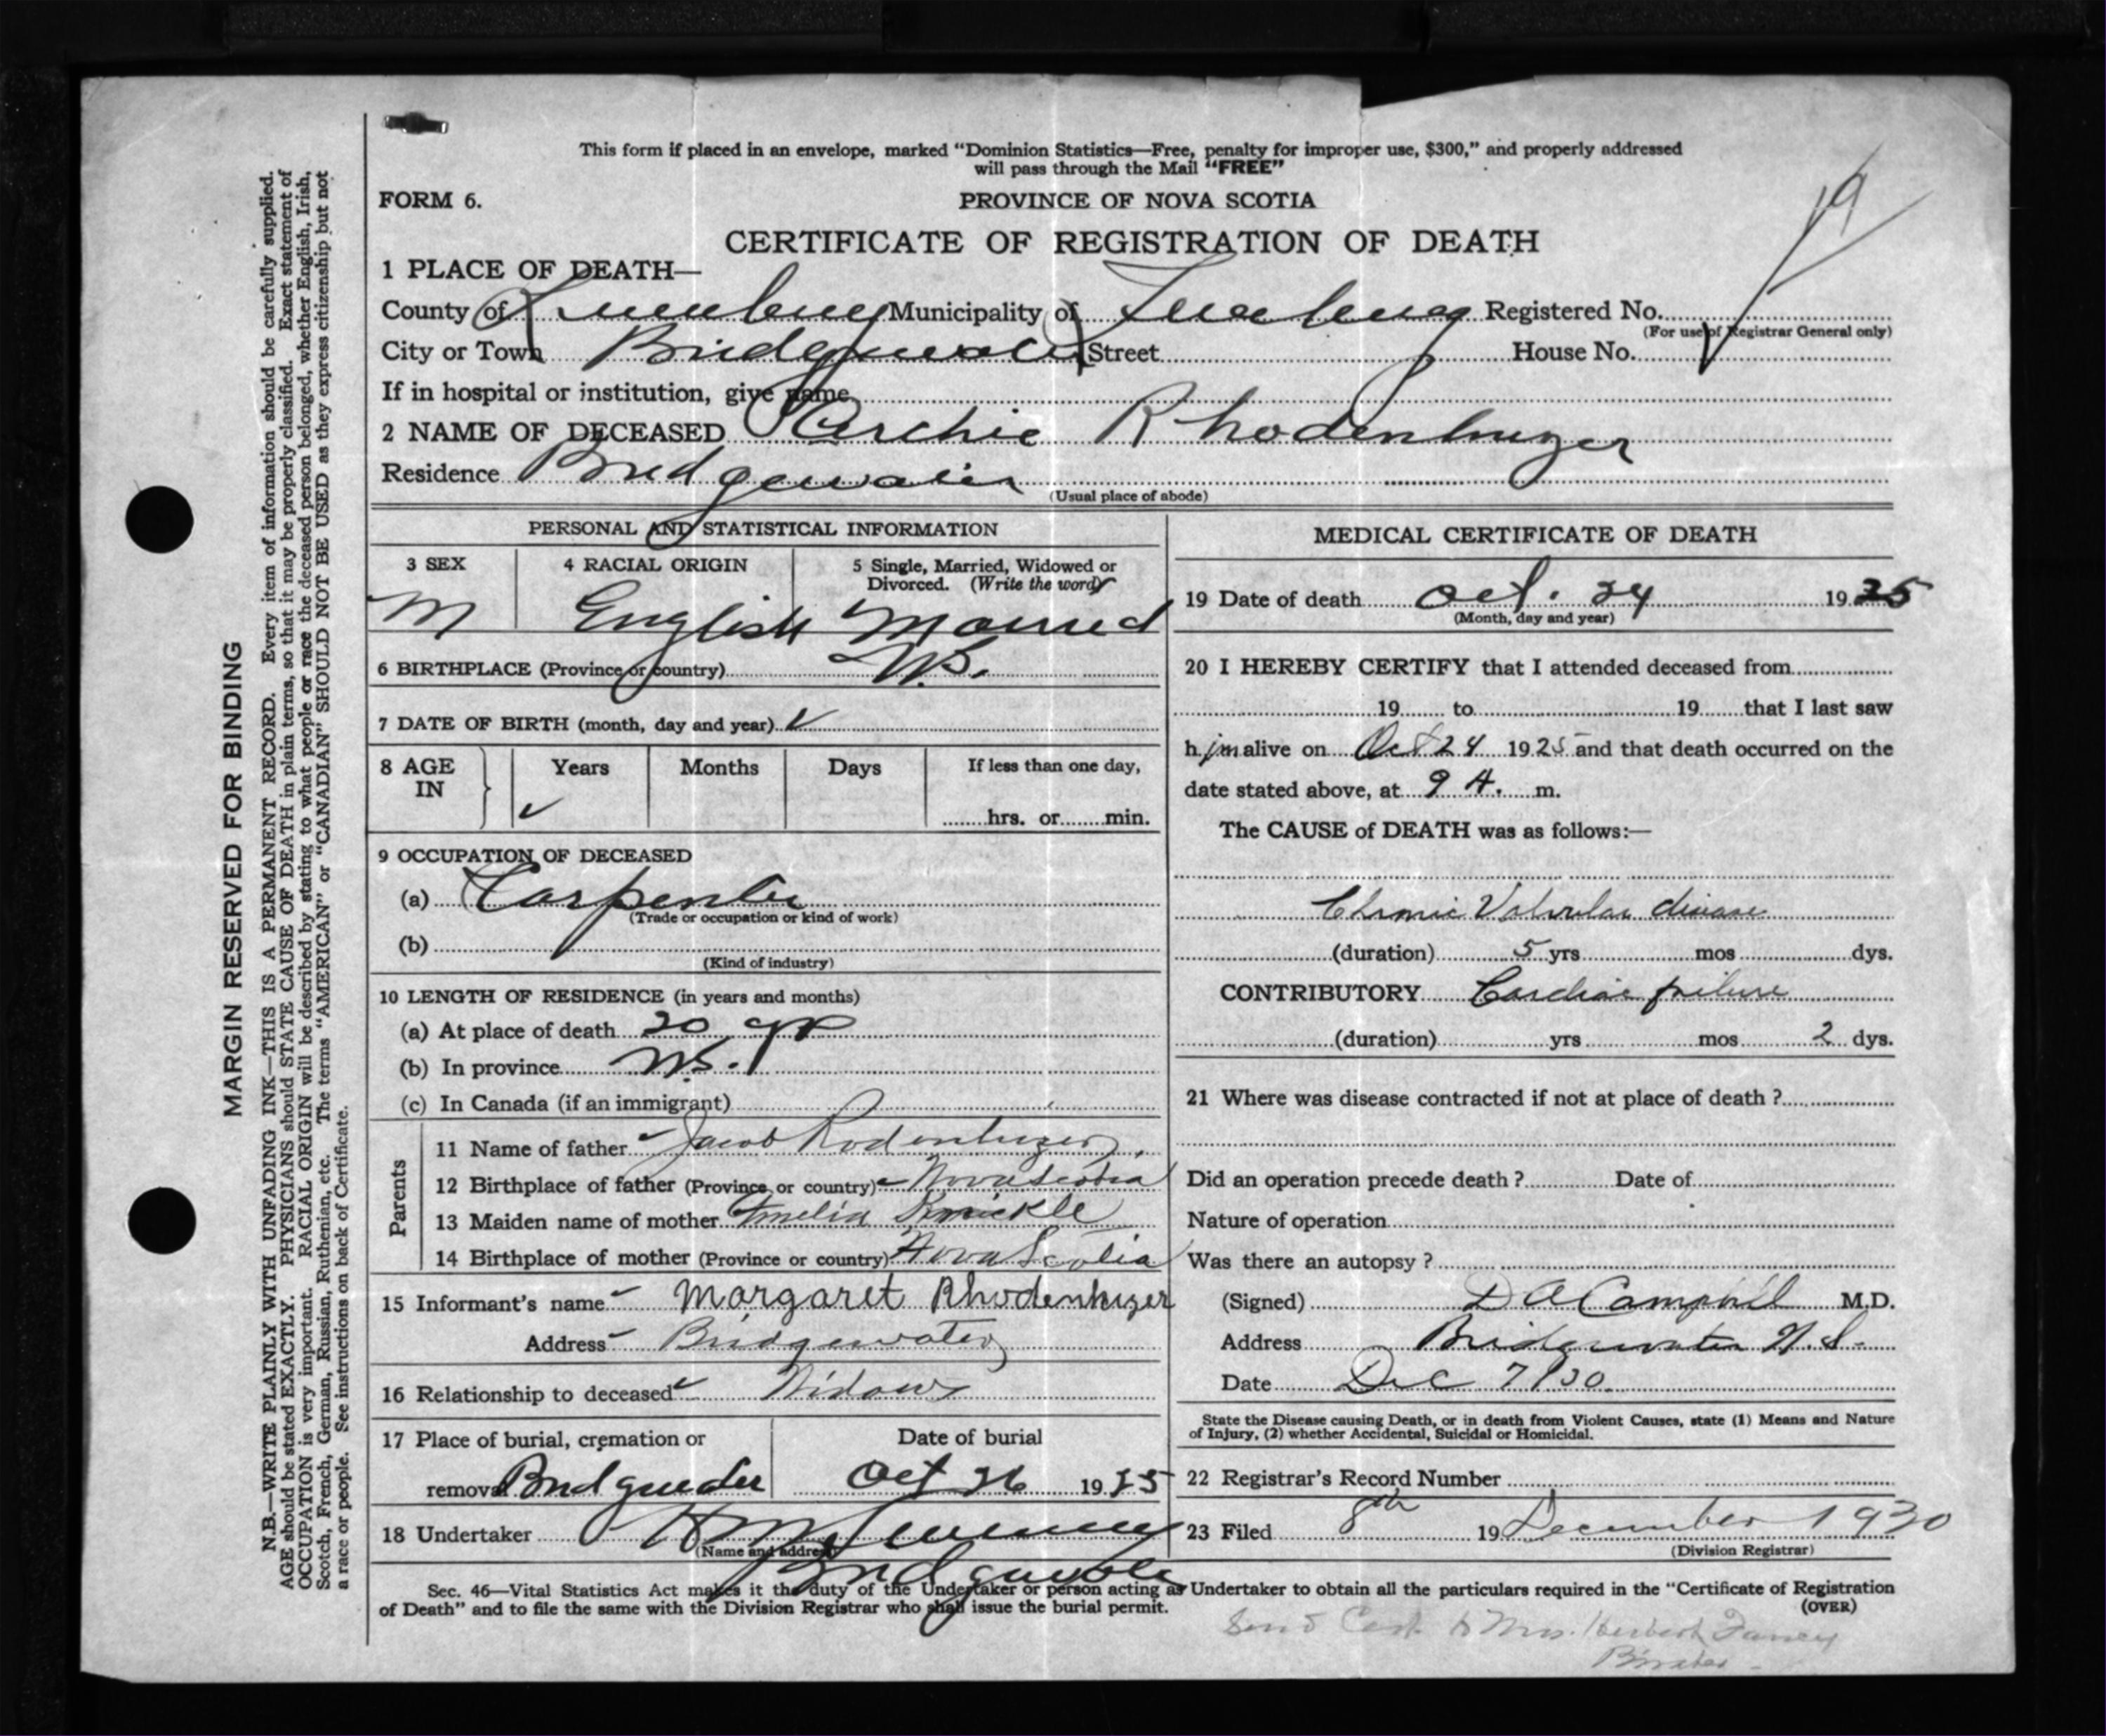 This form if placed in an envelope, marked “Dominion Statistics—Free, penalty for improper use, $300,” and properly addressed
will pass through the Mail “FREE”
FORM 6.
PROVINCE OF NOVA SCOTIA
19
CERTIFICATE OF REGISTRATION OF DEATH
1 PLACE OF DEATH—
County of Lunenburg Municipality of Lunenburg Registered No.
(For use of Registrar General only)
City or Town Bridgewater Street House No.
If in hospital or institution, give name
2 NAME OF DECEASED Archie Rhodenhizer
Residence Bridgewater
(Usual place of abode)
PERSONAL AND STATISTICAL INFORMATION
3 SEX 4 RACIAL ORIGIN 5 Single, Married, Widowed or
Divorced. (Write the word)
M English Married
6 BIRTHPLACE (Province or country) N.S.
7 DATE OF BIRTH (month, day and year) ✓
8 AGE IN Years Months Days If less than one day,
✓ hrs. or min.
9 OCCUPATION OF DECEASED
(a) Carpenter
(Trade or occupation or kind of work)
(b)
(Kind of industry)
10 LENGTH OF RESIDENCE (in years and months)
(a) At place of death 20 yrs
(b) In province N.S.
(c) In Canada (if an immigrant)
Parents
11 Name of father Jacob Rodenhizer
12 Birthplace of father (Province or country) Nova Scotia
13 Maiden name of mother Emelia Knickle
14 Birthplace of mother (Province or country) Nova Scotia
15 Informant's name Margaret Rhodenhizer
Address Bridgewater
16 Relationship to deceased Widow
17 Place of burial, cremation or Date of burial
removal Bridgewater Oct 26 1925
18 Undertaker
(Name and address)
Bridgewater
MEDICAL CERTIFICATE OF DEATH
19 Date of death Oct. 24 1925
(Month, day and year)
20 I HEREBY CERTIFY that I attended deceased from
19 to 19 that I last saw
him alive on Oct 24 1925 and that death occurred on the
date stated above, at 9 A. m.
The CAUSE of DEATH was as follows:—
Chronic Valvular disease
(duration) 5 yrs mos dys.
CONTRIBUTORY Cardiac failure
(duration) yrs mos 2 dys.
21 Where was disease contracted if not at place of death ?
Did an operation precede death ? Date of
Nature of operation
Was there an autopsy ?
(Signed) D A Campbell M.D.
Address Bridgewater N.S.
Date Dec 7/30.
State the Disease causing Death, or in death from Violent Causes, state (1) Means and Nature
of Injury, (2) whether Accidental, Suicidal or Homicidal.
22 Registrar's Record Number
23 Filed 8th 19 December 1930
(Division Registrar)
Sec. 46—Vital Statistics Act makes it the duty of the Undertaker or person acting as Undertaker to obtain all the particulars required in the “Certificate of Registration
of Death” and to file the same with the Division Registrar who shall issue the burial permit.
(OVER)
Send Cert. to Mrs. Herbert Fancy
MARGIN RESERVED FOR BINDING
N.B.—WRITE PLAINLY WITH UNFADING INK—THIS IS A PERMANENT RECORD. Every item of information should be carefully supplied.
AGE should be stated EXACTLY. PHYSICIANS should STATE CAUSE OF DEATH in plain terms, so that it may be properly classified. Exact statement of
OCCUPATION is very important. RACIAL ORIGIN will be described by stating to what people or race the deceased person belonged, whether English, Irish,
Scotch, French, German, Russian, Ruthenian, etc. The terms “AMERICAN” or “CANADIAN” SHOULD NOT BE USED as they express citizenship but not
a race or people. See instructions on back of Certificate.